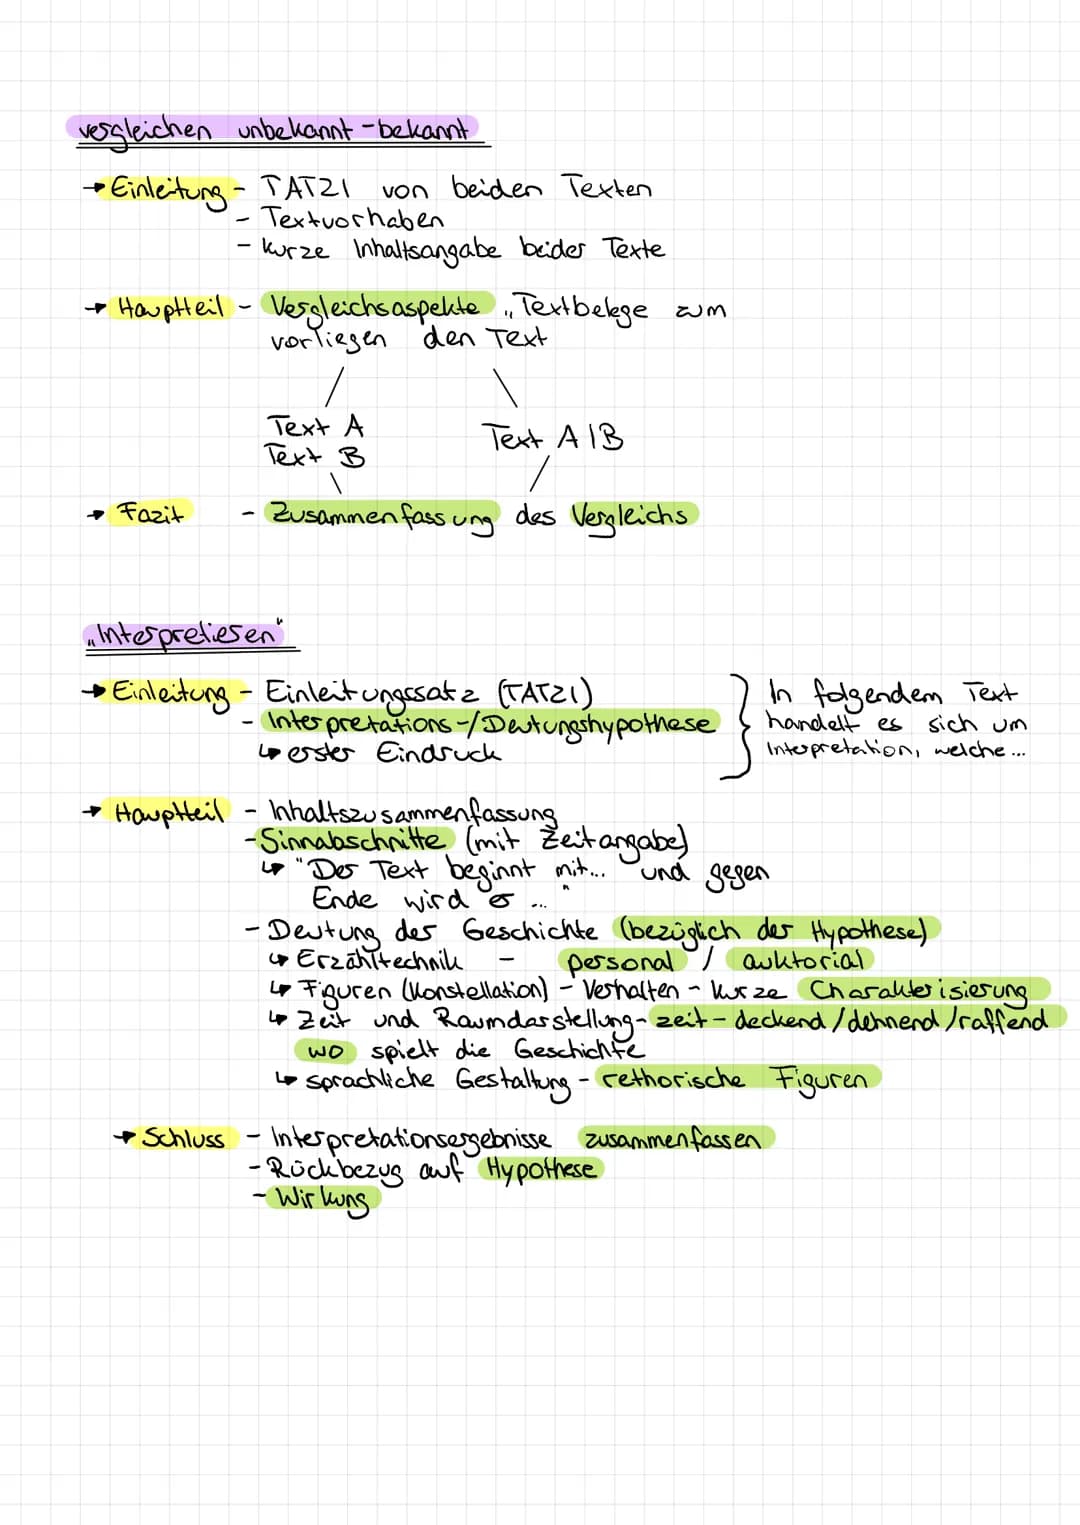 vergleichen unbekannt - bekannt
→ Einleitung - TATZI von beiden Texten
- Textvorhaben
- kurze Inhaltsangabe beider Texte
→ Hauptteil - Vergleichsaspekte „Textbelege zum
vorliegen den Text
Text A
Text B
Text A | B
→ Fazit - Zusammenfassung des Vergleichs
„Interpretieren"
→ Einleitung - Einleitungssatz (TATZI)
- Interpretations-/Deutungshypothese
↳ erster Eindruck
In folgendem Text
handelt es sich um
Interpretation, welche...
→ Hauptteil - Inhaltszusammenfassung
- Sinnabschnitte (mit Zeitangabe)
↳ "Der Text beginnt mit... "und gegen
Ende wird er ..."
- Deutung der Geschichte (bezüglich der Hypothese)
↳ Erzähltechnik - personal / auktorial
↳ Figuren (Konstellation) - Verhalten - kurze Charakterisierung
↳ Zeit und Raumdarstellung - zeit - deckend / dehnend / raffend
wo spielt die Geschichte
↳ sprachliche Gestaltung - rethorische Figuren
→ Schluss - Interpretationsergebnisse zusammenfassen
- Rückbezug auf Hypothese
- Wirkung